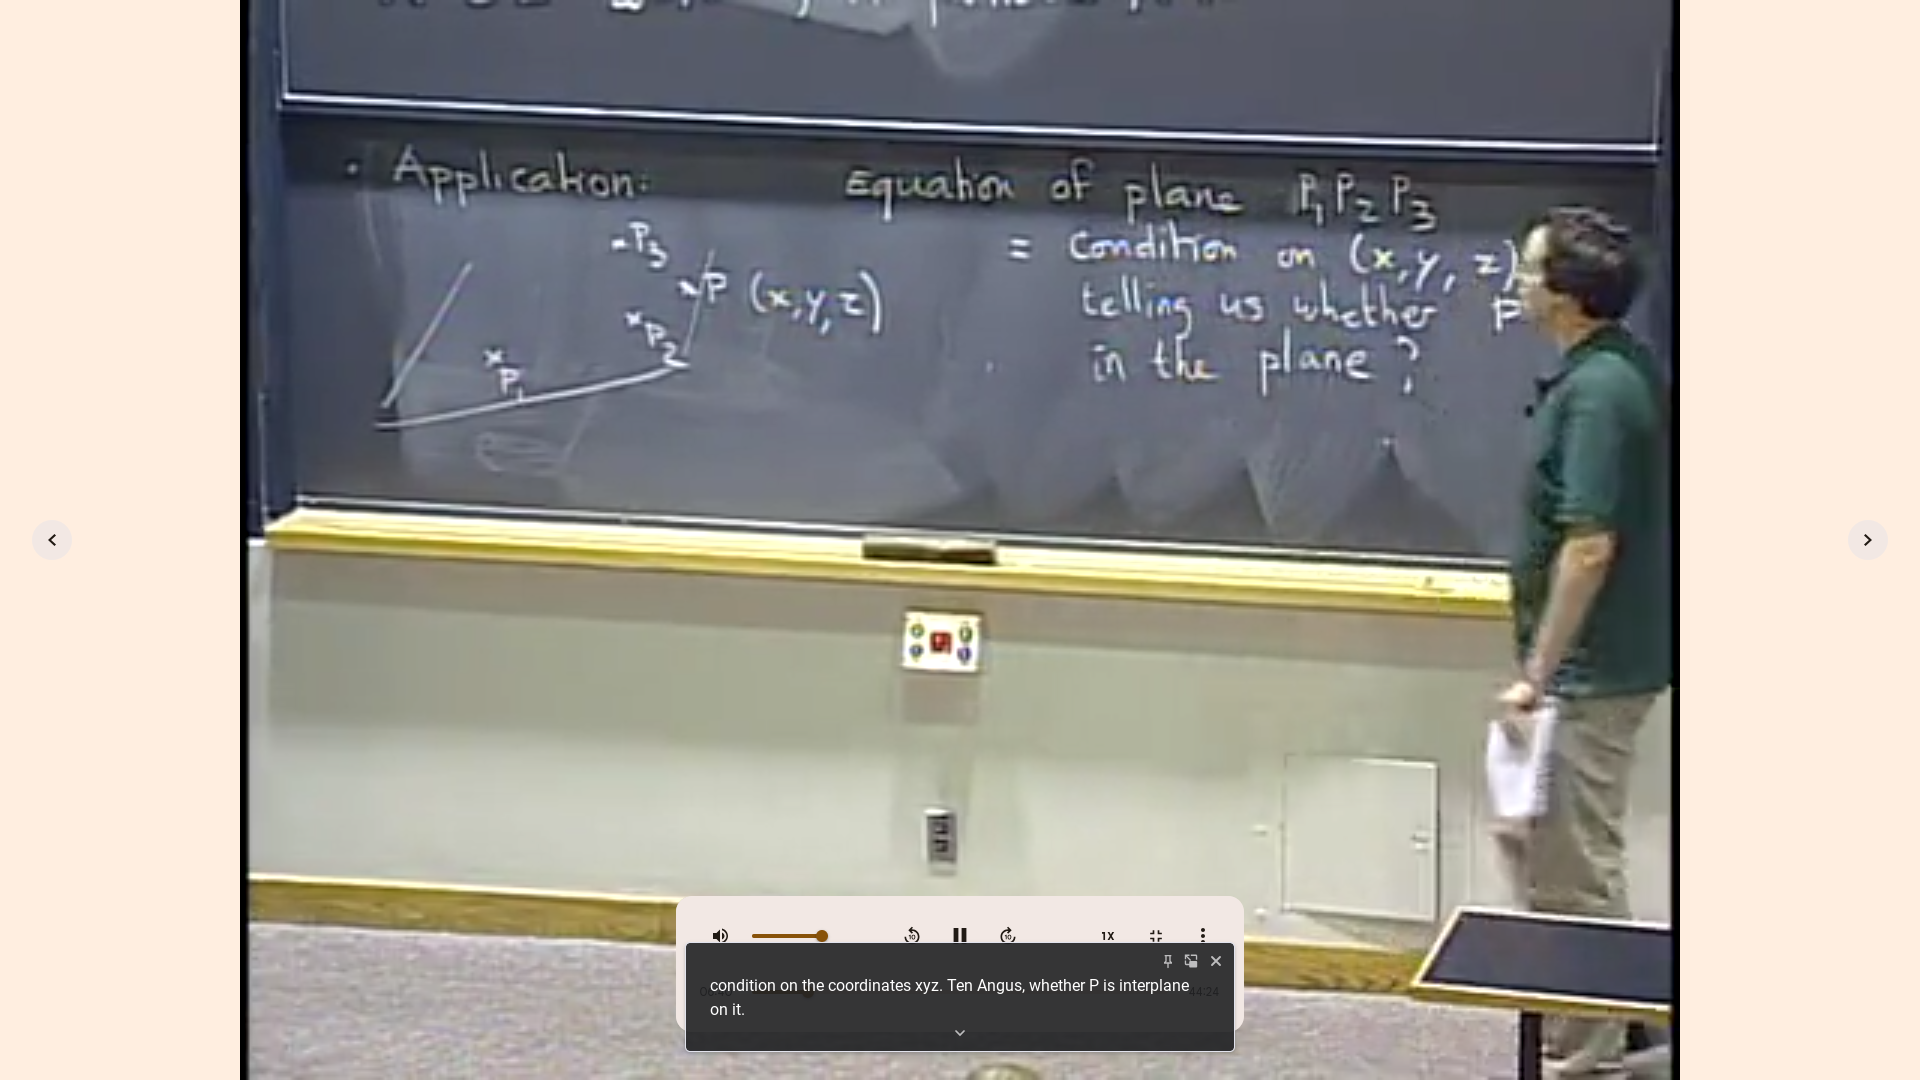 • Application:
Equation of plane P1 P2 P3
= Condition on (x, y, z)
telling us whether P
in the plane?
P3
P (x, y, z)
P2
P1
1X
condition on the coordinates xyz. Ten Angus, whether P is interplane
on it.
44:24